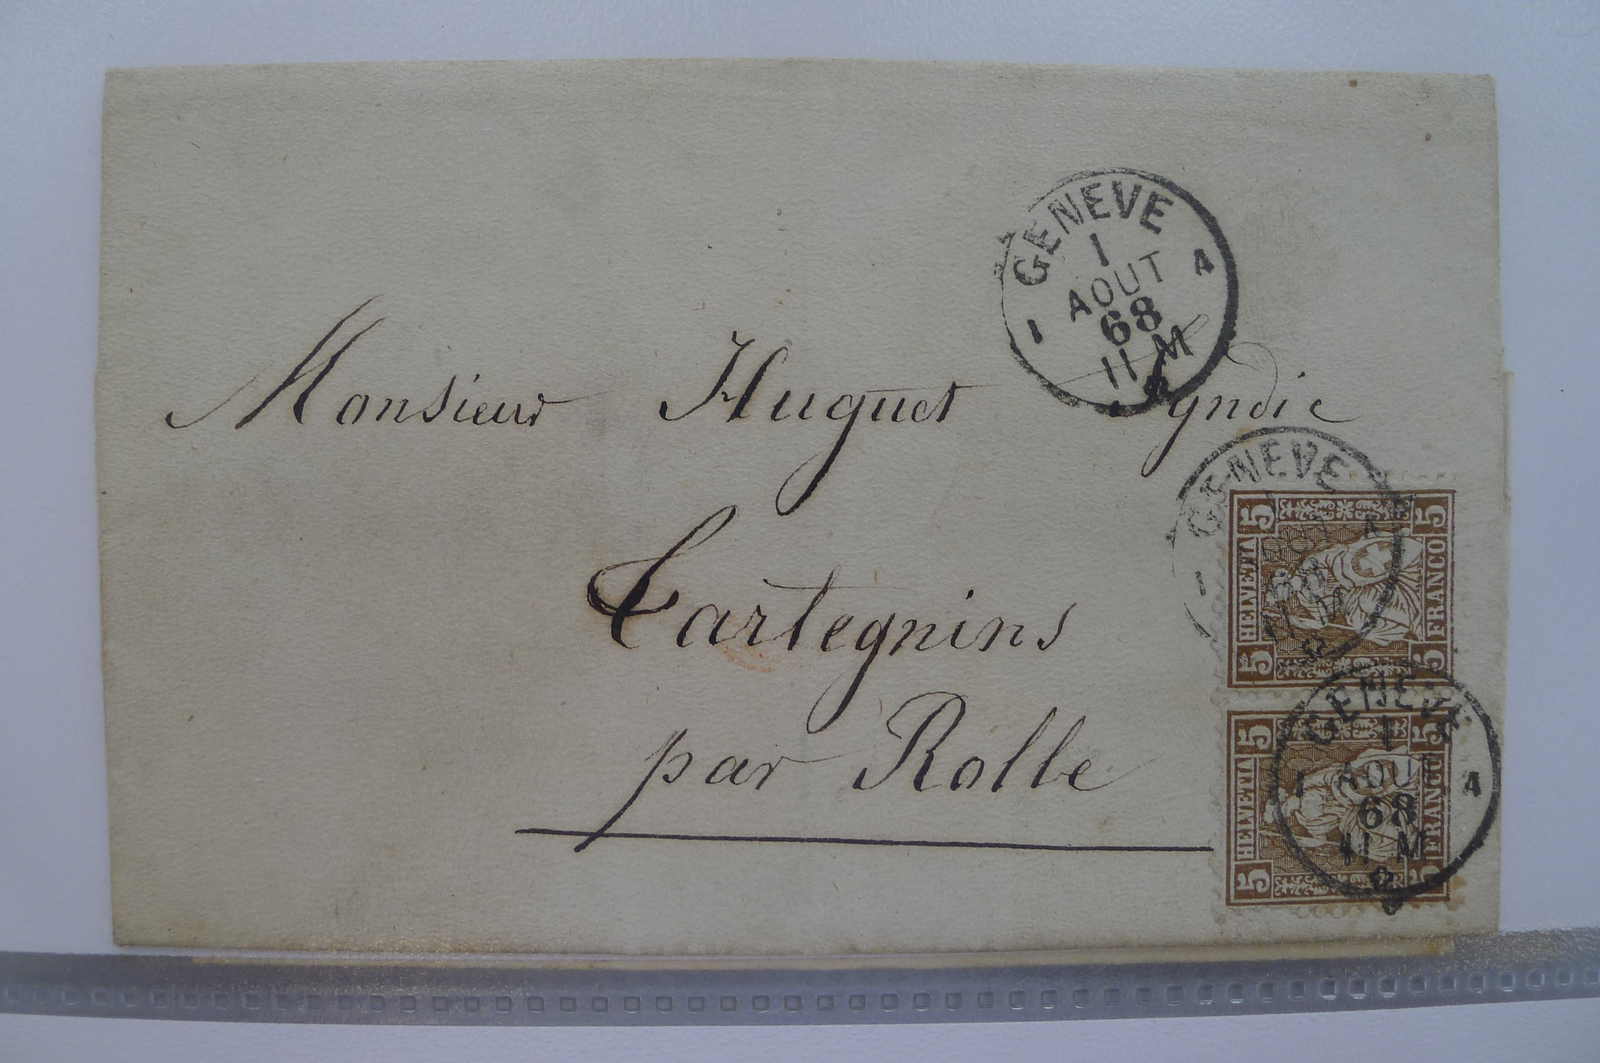 GENEVE
1
AOUT
68
11 M
1 A
Monsieur Huguet Syndic
Tartegnins
par Rolle
GENEVE
5 HELVETIA 5
5 FRANCO 5
GENEVE
1
1 AOUT A
68
11 M
5 HELVETIA 5
5 FRANCO 5